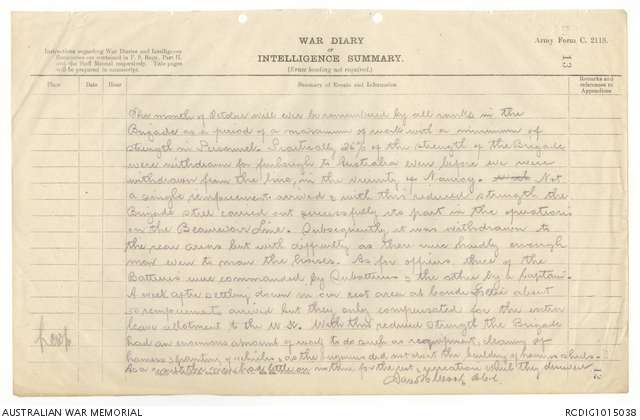 WAR DIARY
or
INTELLIGENCE SUMMARY.
(Erase heading not required.)
Army Form C. 2118.
13
Instructions regarding War Diaries and Intelligence
Summaries are contained in F. S. Regs., Part II.
and the Staff Manual respectively. Title pages
will be prepared in manuscript.
Place
Date
Hour
Summary of Events and Information
Remarks and
references to
Appendices
The month of October will ever be remembered by all ranks in the
Brigade as a period of a maximum of work with a minimum of
strength in Personnel. Practically 26% of the strength of the Brigade
were withdrawn for furlough to Australia even before we were
withdrawn from the line, in the vicinity of Nauroy. Not
a single reinforcement arrived & with this reduced strength the
Brigade still carried out successfully its part in the operations
on the Beaurevoir Line. Subsequently it was withdrawn to
the rear areas but with difficulty as there were hardly enough
men even to man the horses. As for officers three of the
Batteries were commanded by Subalterns & the other by a Captain.
A week after settling down in our rest area at about
reinforcements arrived but they only compensated for the extra
leave allotment to the U.K. With this reduced strength the Brigade
had an enormous amount of work to do such as equipment, cleaning of
harness & painting of vehicles, as the did not the building of sheds.
for the rest & recreation which they deserved
AUSTRALIAN WAR MEMORIAL
RCDIG1015038